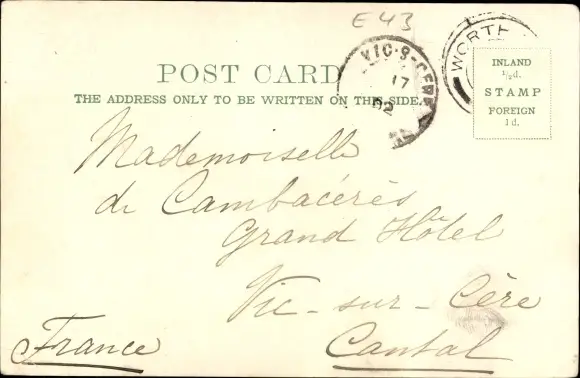 E 43
VIC-S-CÈRE
17
02
WORTH
POST CARD
THE ADDRESS ONLY TO BE WRITTEN ON THIS SIDE.
INLAND
½d.
STAMP
FOREIGN
1d.
Mademoiselle
de Cambacérès
Grand Hôtel
Vic-sur-Cère
France
Cantal